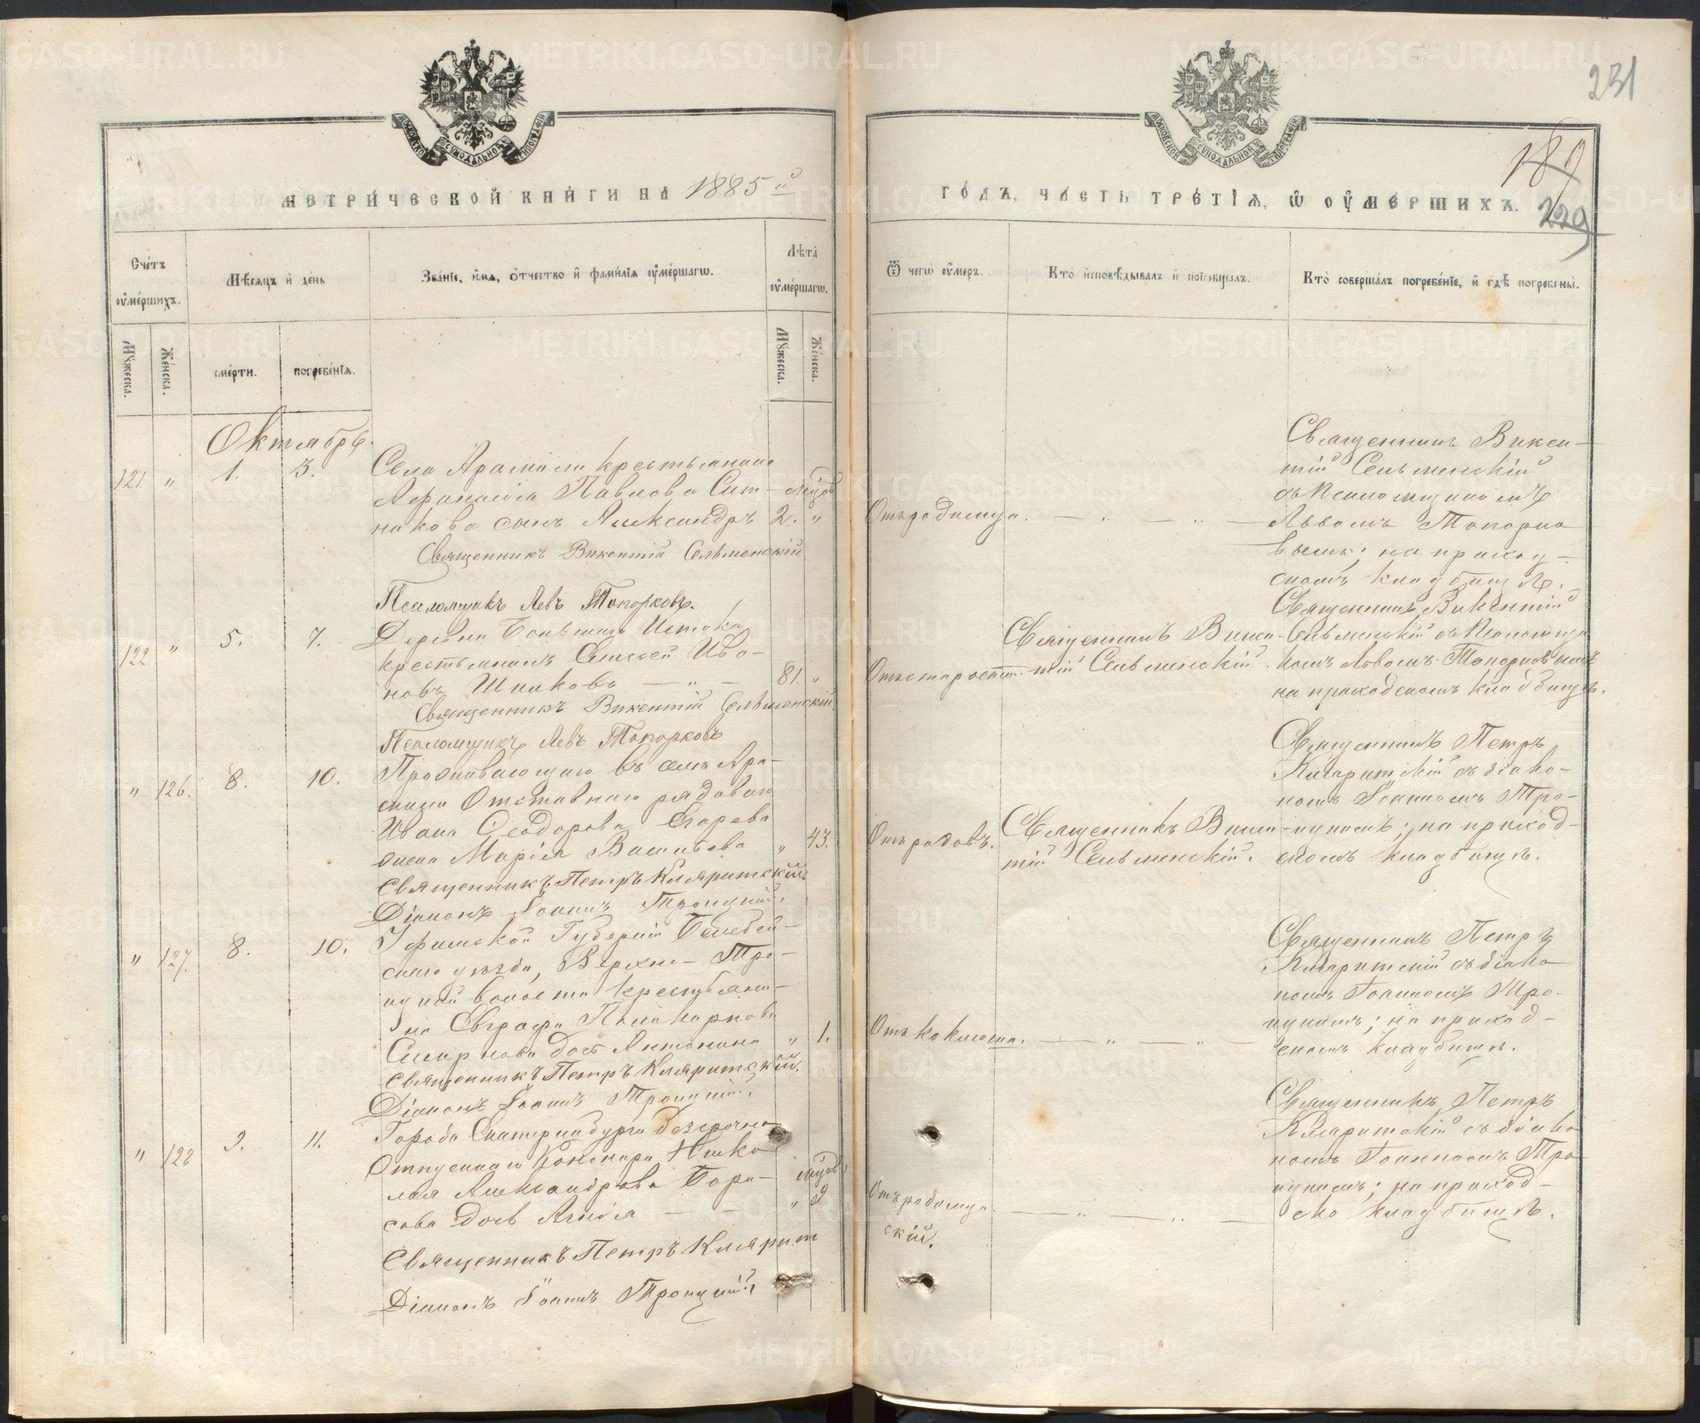 231
189
229
МЕТРИЧЕСКОЙ КНИГИ НА 1885 й
ГОДЪ, ЧАСТЬ ТРЕТІЯ, Ѡ ОУМЕРШИХЪ.
Счетъ оумершихъ.
Мѣсяцъ и день
Званіе, имя, отчество и фамилія оумершагѡ.
Лѣта оумершагѡ.
Ѿ чегѡ оумеръ.
Кто исповѣдывалъ и пріобщалъ.
Кто совершалъ погребеніе, и гдѣ погребены.
Мужеска.
Женска.
смерти.
погребенія.
Мужеска.
Женска.
Октябрь.
121 " 1. 3.
Села Арамили крестьянина
Афанасія Павлова Сит-
никова сынъ Александръ 2. "
Священникъ Викентій Сельменскій
Псаломщикъ Левъ Топорковъ.
Отъ родимца.
Священникъ Викен-
тій Сельменскій
съ Псаломщикомъ
Львомъ Топорко
вымъ; на приход-
скомъ кладбищѣ.
122 " 5. 7.
Деревни Большаго Истока
крестьянинъ Алексей Ива-
новъ Шпиковъ 81. "
Священникъ Викентій Сельменскій
Псаломщикъ Левъ Топорковъ
Отъ старости.
Священникъ Викен-
тій Сельменскій.
Священникъ Викентій
Сельменскій съ Псаломщи
комъ Львомъ Топорковымъ
на приходскомъ кладбищѣ.
" 126. 8. 10.
Проживающаго въ селѣ Ара-
мили Отставнаго рядоваго
Ивана Ѳеодорова Егорева
жена Марія Васильева " 43.
Священникъ Петръ Кларитскій.
Діаконъ Іоаннъ Троицкій.
Отъ родовъ.
Священникъ Викен-
тій Сельменскій.
Священникъ Петръ
Кларитскій съ діако-
номъ Іоанномъ Тро-
ицкимъ; на приход-
скомъ кладбищѣ.
" 127. 8. 10.
Уфимской Губерніи Белебей-
скаго уѣзда, Верхне-Тро-
ицкой волости крестьяни-
на Евграфа Поликарпова
Смирнова дочь Антонина " 1.
Священникъ Петръ Кларитскій.
Діаконъ Іоаннъ Троицкій.
Отъ коклюша.
Священникъ Петръ
Кларитскій съ діако
номъ Іоанномъ Тро-
ицкимъ; на приход-
скомъ кладбищѣ.
" 128 9. 11.
Города Екатеринбурга безсрочно
Отпускнаго Канонира Нико
лая Александрова Бори-
сова дочь Агнія
Священникъ Петръ Кларит
Діаконъ Іоаннъ Троицкій
Священникъ Петръ
Кларитскій съ діако
номъ Іоанномъ Тро
ицкимъ; на приход-
ско кладбищѣ.